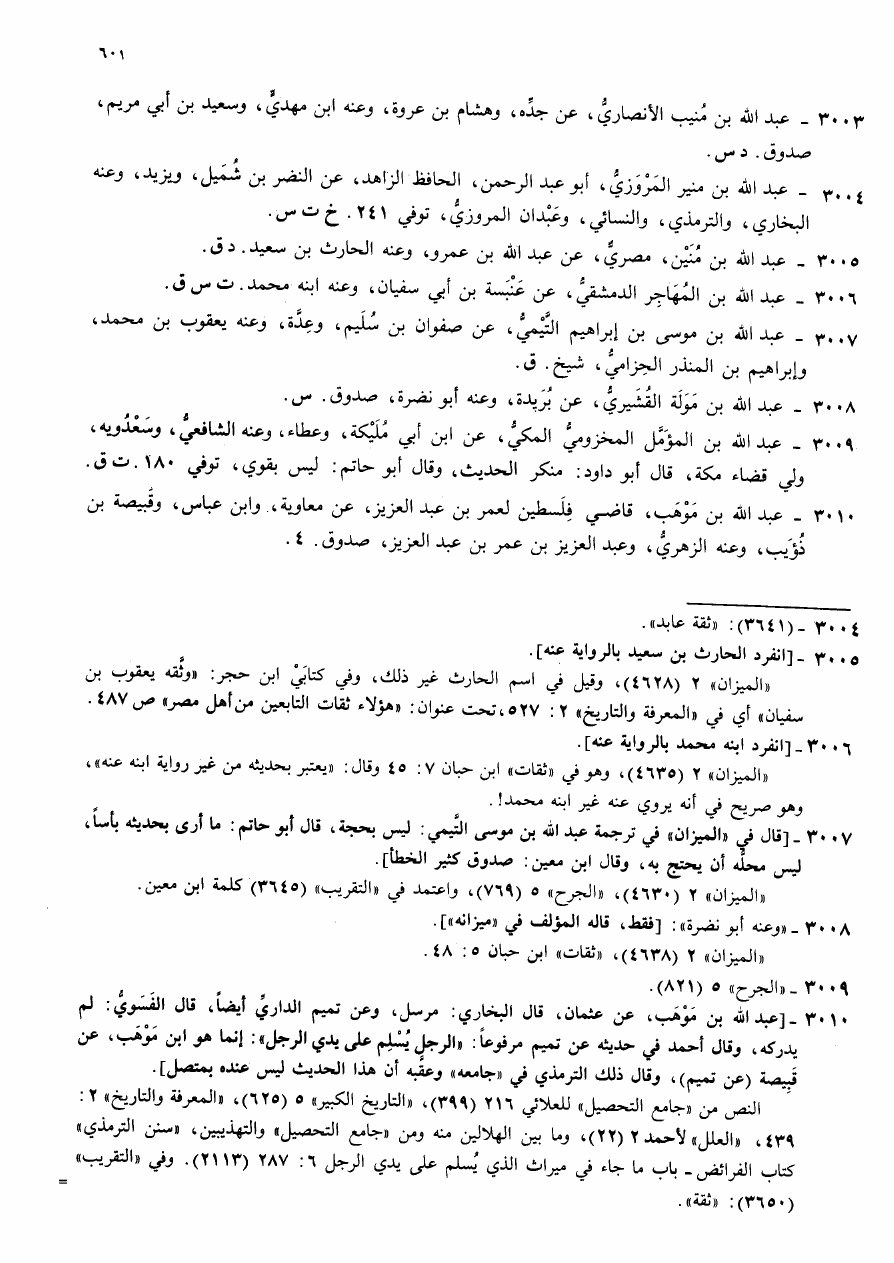 ٦٠١
٣٠٠٣ ـ عبد الله بن مُنيب الأنصاريُّ، عن جدِّه، وهشام بن عروة، وعنه ابن مهديٍّ، وسعيد بن أبي مريم،
صدوق. د س.
٣٠٠٤ ـ عبد الله بن منير المَرْوَزيُّ، أبو عبد الرحمن، الحافظ الزاهد، عن النضر بن شُمَيل، ويزيد، وعنه
البخاري، والترمذي، والنسائي، وعَبْدان المروزيُّ، توفي ٢٤١. خ ت س.
٣٠٠٥ ـ عبد الله بن مُنَيْن، مصريٌّ، عن عبد الله بن عمرو، وعنه الحارث بن سعيد. د ق.
٣٠٠٦ ـ عبد الله بن المُهَاجِر الدمشقيُّ، عن عَنْبَسة بن أبي سفيان، وعنه ابنه محمد. ت س ق.
٣٠٠٧ ـ عبد الله بن موسى بن إبراهيم التَّيْميُّ، عن صفوان بن سُلَيم، وعِدَّة، وعنه يعقوب بن محمد،
وإبراهيم بن المنذر الحِزاميُّ، شيخ. ق.
٣٠٠٨ ـ عبد الله بن مَوَلَة القُشَيريُّ، عن بُرَيدة، وعنه أبو نضرة، صدوق. س.
٣٠٠٩ ـ عبد الله بن المؤمَّل المخزوميُّ المكيُّ، عن ابن أبي مُلَيْكة، وعطاء، وعنه الشافعيُّ، وسَعْدُويه،
ولي قضاء مكة، قال أبو داود: منكر الحديث، وقال أبو حاتم: ليس بقوي، توفي ١٨٠. ت ق.
٣٠١٠ ـ عبد الله بن مَوْهَب، قاضي فِلَسطين لعمر بن عبد العزيز، عن معاوية، وابن عباس، وقَبيصة بن
ذُؤَيب، وعنه الزهريُّ، وعبد العزيز بن عمر بن عبد العزيز، صدوق. ٤.
٣٠٠٤ ـ (٣٦٤١): «ثقة عابد».
٣٠٠٥ ـ [انفرد الحارث بن سعيد بالرواية عنه].
«الميزان» ٢ (٤٦٢٨)، وقيل في اسم الحارث غير ذلك، وفي كتابَيْ ابن حجر: «وثَّقه يعقوب بن
سفيان» أي في «المعرفة والتاريخ» ٢: ٥٢٧، تحت عنوان: «هؤلاء ثقات التابعين من أهل مصر» ص ٤٨٧.
٣٠٠٦ ـ [انفرد ابنه محمد بالرواية عنه].
«الميزان» ٢ (٤٦٣٥)، وهو في «ثقات» ابن حبان ٧: ٤٥ وقال: «يعتبر بحديثه من غير رواية ابنه عنه»،
وهو صريح في أنه يروي عنه غير ابنه محمد!.
٣٠٠٧ ـ [قال في «الميزان» في ترجمة عبد الله بن موسى التَّيمي: ليس بحجة، قال أبو حاتم: ما أرى بحديثه بأساً،
ليس محلُّه أن يحتج به، وقال ابن معين: صدوق كثير الخطأ].
«الميزان» ٢ (٤٦٣٠)، «الجرح» ٥ (٧٦٩)، واعتمد في «التقريب» (٣٦٤٥) كلمة ابن معين.
٣٠٠٨ ـ «وعنه أبو نضرة»: [فقط، قاله المؤلف في «ميزانه»].
«الميزان» ٢ (٤٦٣٨)، «ثقات» ابن حبان ٥: ٤٨.
٣٠٠٩ ـ «الجرح» ٥ (٨٢١).
٣٠١٠ ـ [عبد الله بن مَوْهَب، عن عثمان، قال البخاري: مرسل، وعن تميم الداريِّ أيضاً، قال الفَسَويُّ: لم
يدركه، وقال أحمد في حديثه عن تميم مرفوعاً: «الرجل يُسْلِم على يدي الرجل»: إنما هو ابن مَوْهَب، عن
قَبِيصة (عن تميم)، وقال ذلك الترمذي في «جامعه» وعقَّبه أن هذا الحديث ليس عنده بمتصل].
النص من «جامع التحصيل» للعلائي ٢١٦ (٣٩٩)، «التاريخ الكبير» ٥ (٦٢٥)، «المعرفة والتاريخ» ٢:
٤٣٩، «العلل» لأحمد ٢ (٢٢)، وما بين الهلالين منه ومن «جامع التحصيل» والتهذيبين، «سنن الترمذي»
كتاب الفرائض ـ باب ما جاء في ميراث الذي يُسلم على يدي الرجل ٦: ٢٨٧ (٢١١٣). وفي «التقريب»
(٣٦٥٠): «ثقة».
=